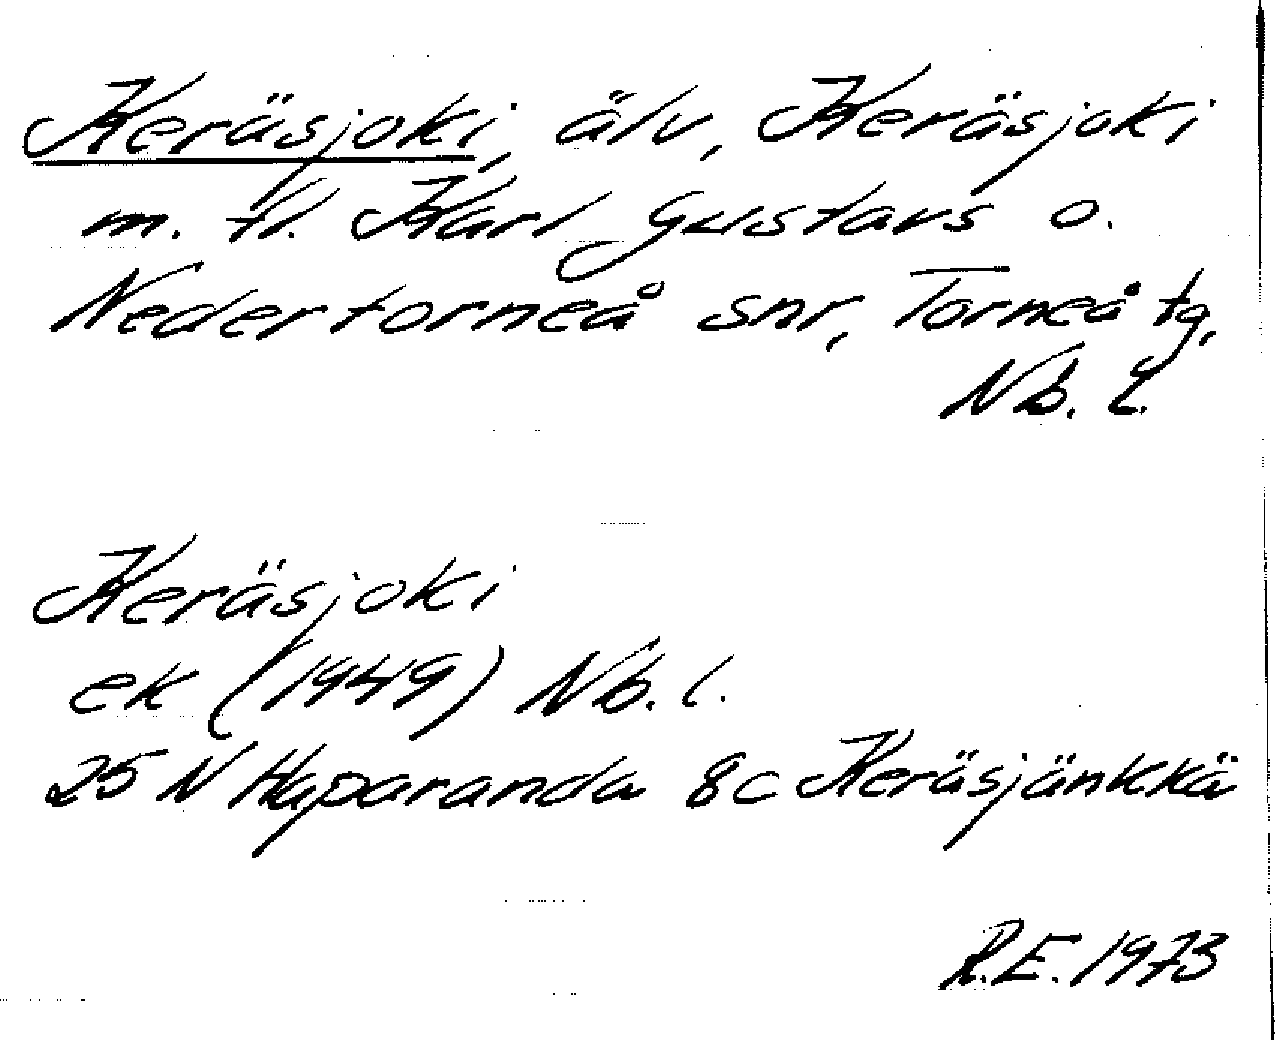 Keräsjoki, älv, Keräsjoki
m. fl. Karl Gustavs o.
Nedertorneå snr, Torneå tg,
Nb. l.
Keräsjoki
ek (1949) Nb. l.
25 N Haparanda 8c Keräsjänkkä
R.E. 1973